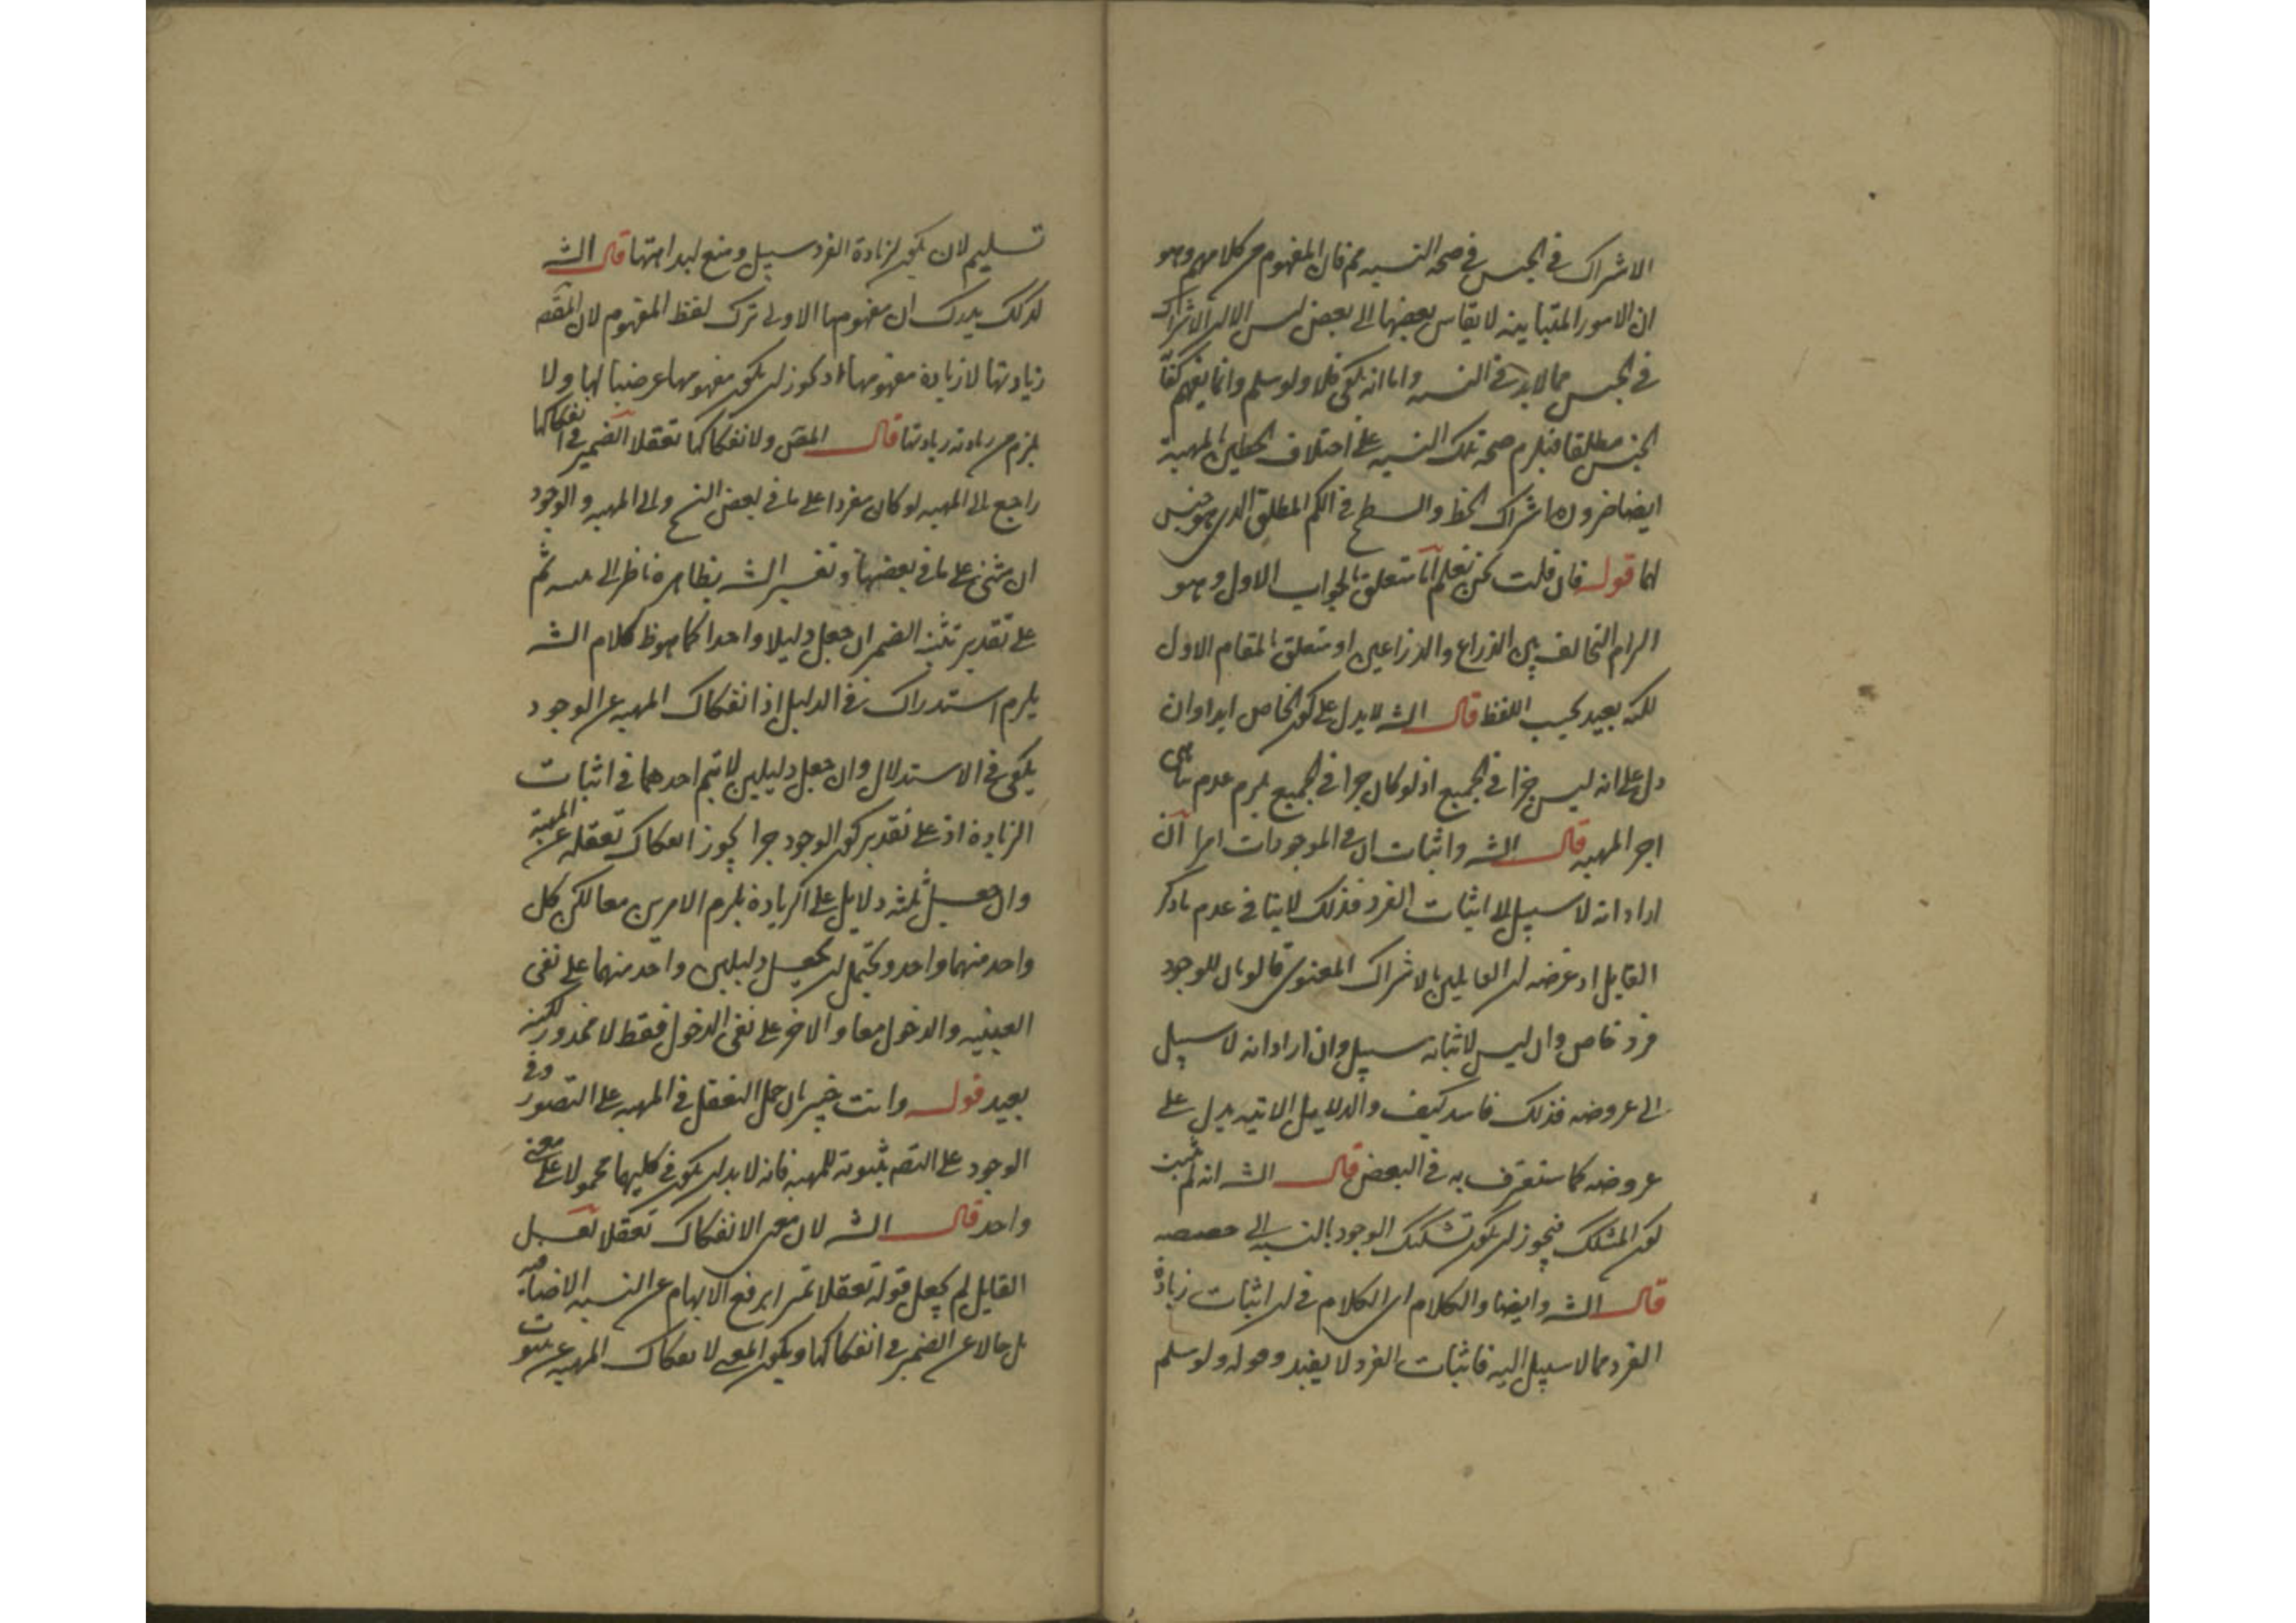 الاشراك في الجنس في صحة النسبه ثم قال المفهوم من كلامهم وهو
ان الامور المتباينه لا يقاس بعضها الى بعض ليس الا ان الاشراك
في الجنس مما لا بد في النسبه واما انه يكفي فلا ولو سلم وانما يفهم كفاية
الجنس مطلقا فيلزم صحة تلك النسبه على اختلاف الخطين بالمهية
ايضا ضرورة اشراك الخط والسطح في الكم المطلق الذى هو جنس
لهما قوله فان قلت نحن نعلم آه متعلق بالجواب الاول وهو
الزام التخالف بين الذراع والذراعين او متعلق بالمقام الاول
لكنه بعيد بحسب اللفظ قال الشه لا يدل على كون الخاص ابدا وان
دل على انه ليس جزا في الجميع اذ لو كان جزا في الجميع يلزم عدم تناهى
اجزا المهيه قال الشه واثبات ان في الموجودات امرا آه ان
اراد انه لا سبيل الى اثبات الفرد فذلك لا ينافى عدم ما ذكر
القايل اذ غرضه ان القايلين بالاشراك المعنوى قالو بان للوجود
فرد خاص وان ليس لاثباته سبيل وان اراد انه لا سبيل
الى عروضه فذلك فاسد كيف والدلايل الاتيه يدل على
عروضه كما ستعترف به في البعض قال الشه انه لم يثبت
كون المشكك فيجوز ان يكون تشكيك الوجود بالنسبه الى حصصه
قال الشه وايضا والكلام اى الكلام في ان اثبات زيادة
الفرد مما لا سبيل اليه فاثبات الفرد لا يفيد وقوله ولو سلم
تسليم لان يكون لزيادة الفرد سبيل ومنع لبداهتها قال الشه
كذلك يدرك ان مفهومها الاولى ترك لفظ المفهوم لان المقصه
زيادتها لا زيادة مفهومها اذ يجوز ان يكون مفهومها عرضيا لها ولا
يلزم من زيادته زيادتها قال المص ولانفكاكهما تعقلا الضمير في انفكاكها
راجع الى المهيه لو كان مفردا على ما في بعض النسخ والى المهيه والوجود
ان مثنى على ما في بعضها وتفسير الشه بظاهره ناظر الى ثم
على تقدير تثنيه الضمير ان جعل دليلا واحدا كما هو ظ كلام الشه
يلزم استدراك في الدليل اذ انفكاك المهيه عن الوجود
يكفى في الاستدلال وان جعل دليلين لا يتم احدهما في اثبات
الزيادة اذ على تقدير كون الوجود جزا يجوز انفكاك تعقله عن المهية
وان جعل ثلثه دلايل على الزيادة يلزم الامرين معا لكن كل
واحد منهما واحد ويحتمل ان يجعل دليلين واحد منهما على نفى
العينيه والدخول معا والاخر على نفى الدخول فقط لا محذور لكنه
بعيد قوله وانت خبير بان حمل التعقل في المهيه على التصور وفى
الوجود على التصه بثبوته للمهيه فانه لا بد ان يكون في كليهما محمولا على معنى
واحد قال الشه لان معنى الانفكاك تعقلا
القايل لم يجعل قوله تعقلا تميزا يرفع الابهام عن النسبه الاضافيه
بل حالا عن الضمير في انفكاكها ويكون المعنى لانفكاك المهيه عن ثبوت